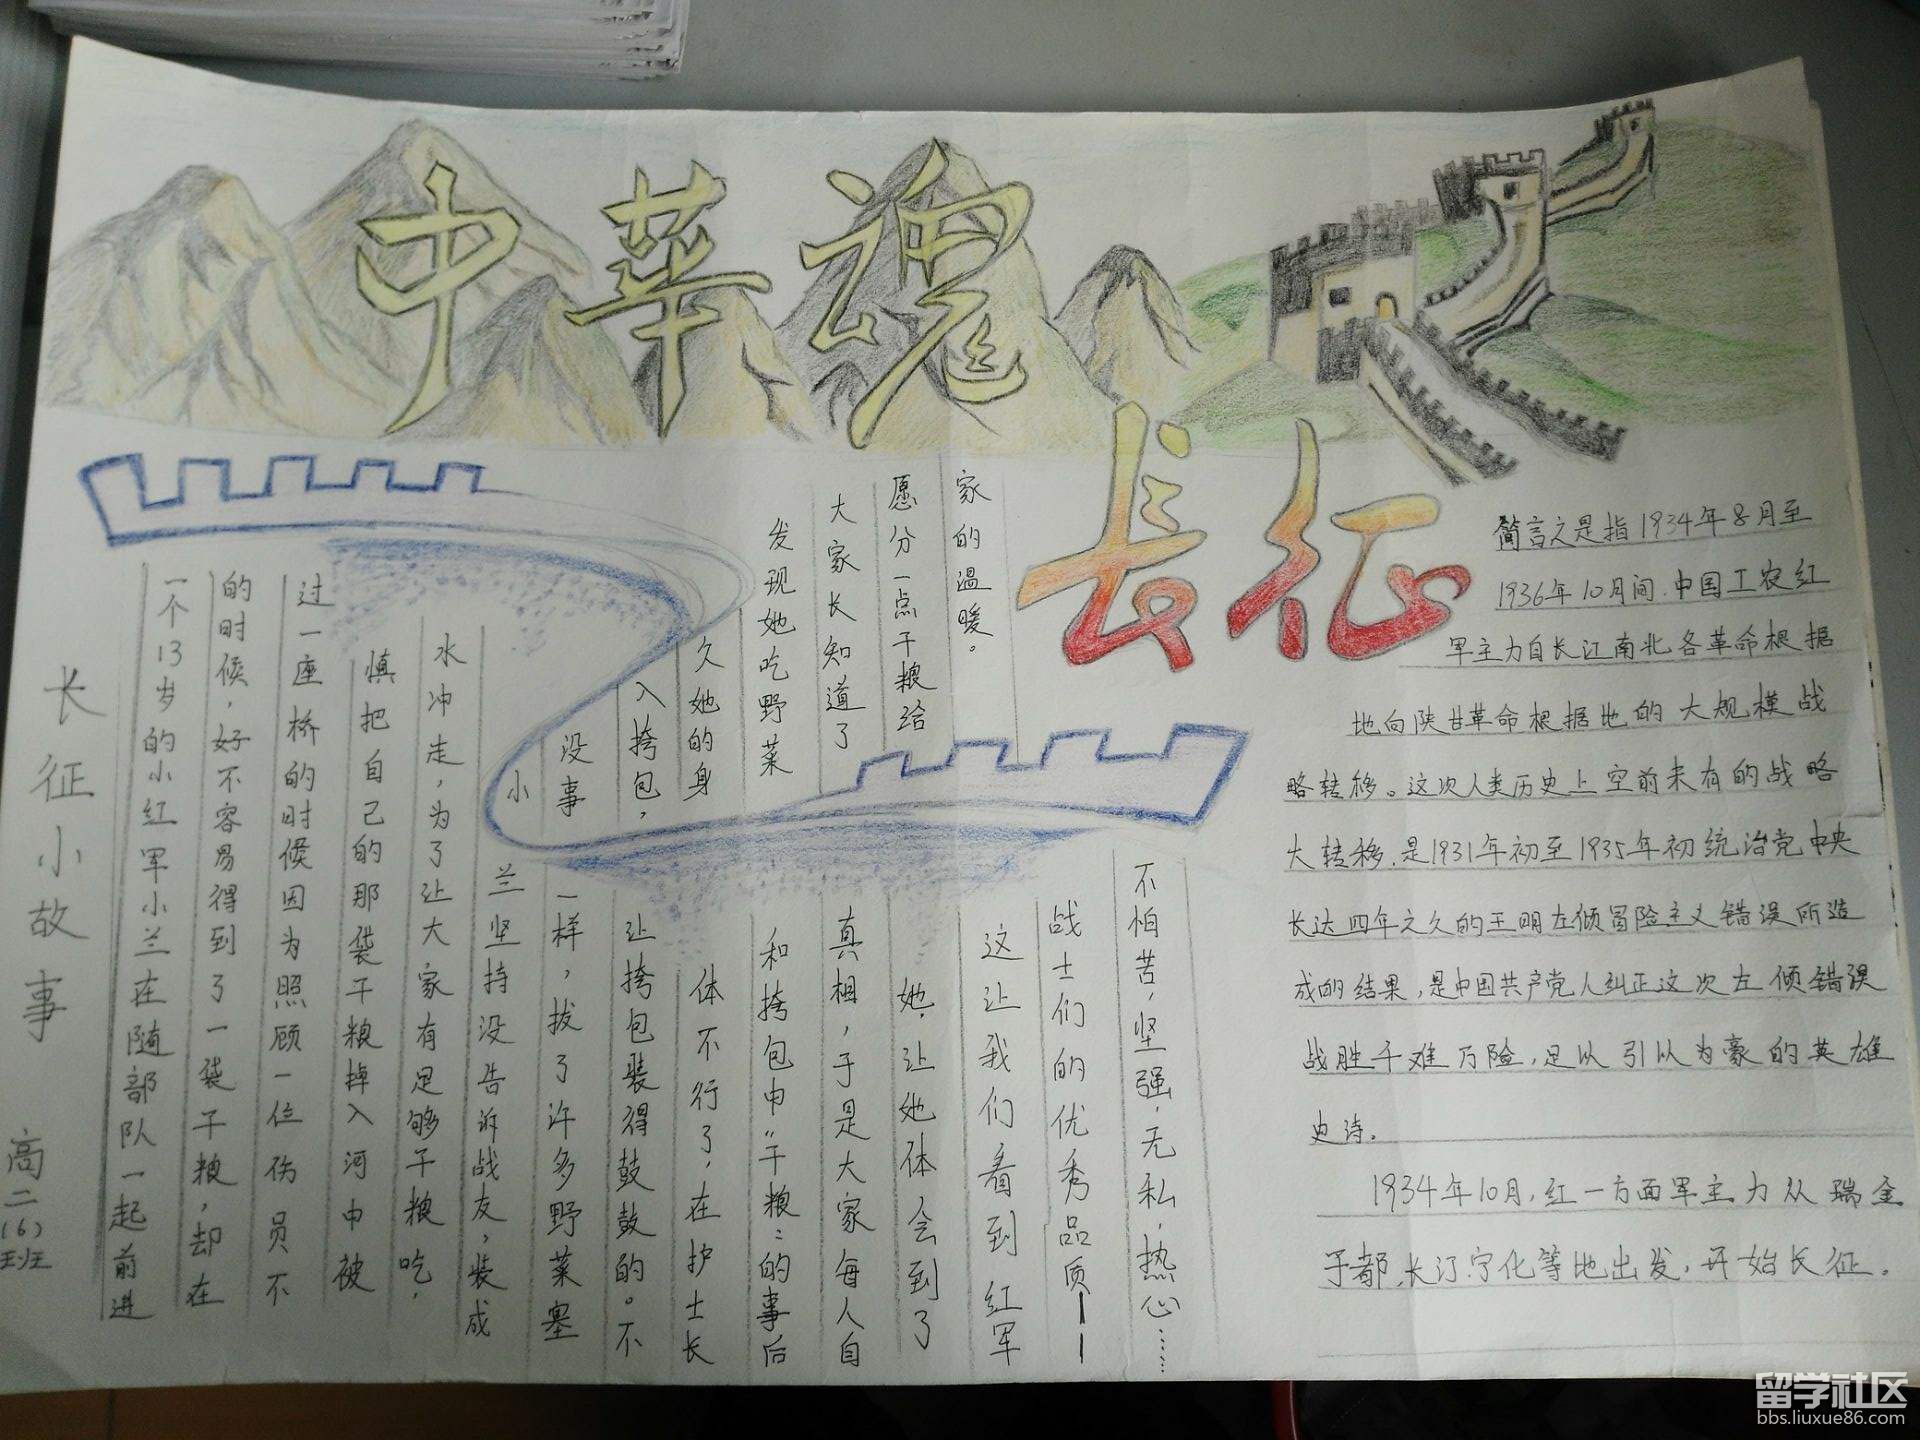 中华魂
长征
长征小故事
高二(6)班
一个13岁的小红军小兰在随部队一起前进
的时候,好不容易得到了一袋干粮,却在
过一座桥的时候因为照顾一位伤员不
慎把自己的那袋干粮掉入河中被
水冲走,为了让大家有足够干粮吃,
小兰坚持没告诉战友,装成
没事一样,拔了许多野菜塞
入挎包,让挎包装得鼓鼓的。不
久她的身体不行了,在护士长
发现她吃野菜和挎包中“干粮”的事后
大家长知道了真相,于是大家每人自
愿分一点干粮给她,让她体会到了
家的温暖。这让我们看到红军
战士们的优秀品质——
不怕苦,坚强,无私,热心……
简言之是指1934年8月至
1936年10月间,中国工农红
军主力自长江南北各革命根据
地向陕甘革命根据地的大规模战
略转移。这次人类历史上空前未有的战略
大转移,是1931年初至1935年初统治党中央
长达四年之久的王明左倾冒险主义错误所造
成的结果,是中国共产党人纠正这次左倾错误
战胜千难万险,足以引以为豪的英雄
史诗。
1934年10月,红一方面军主力从瑞金
于都、长汀、宁化等地出发,开始长征。
留学社区
bbs.liuxue86.com